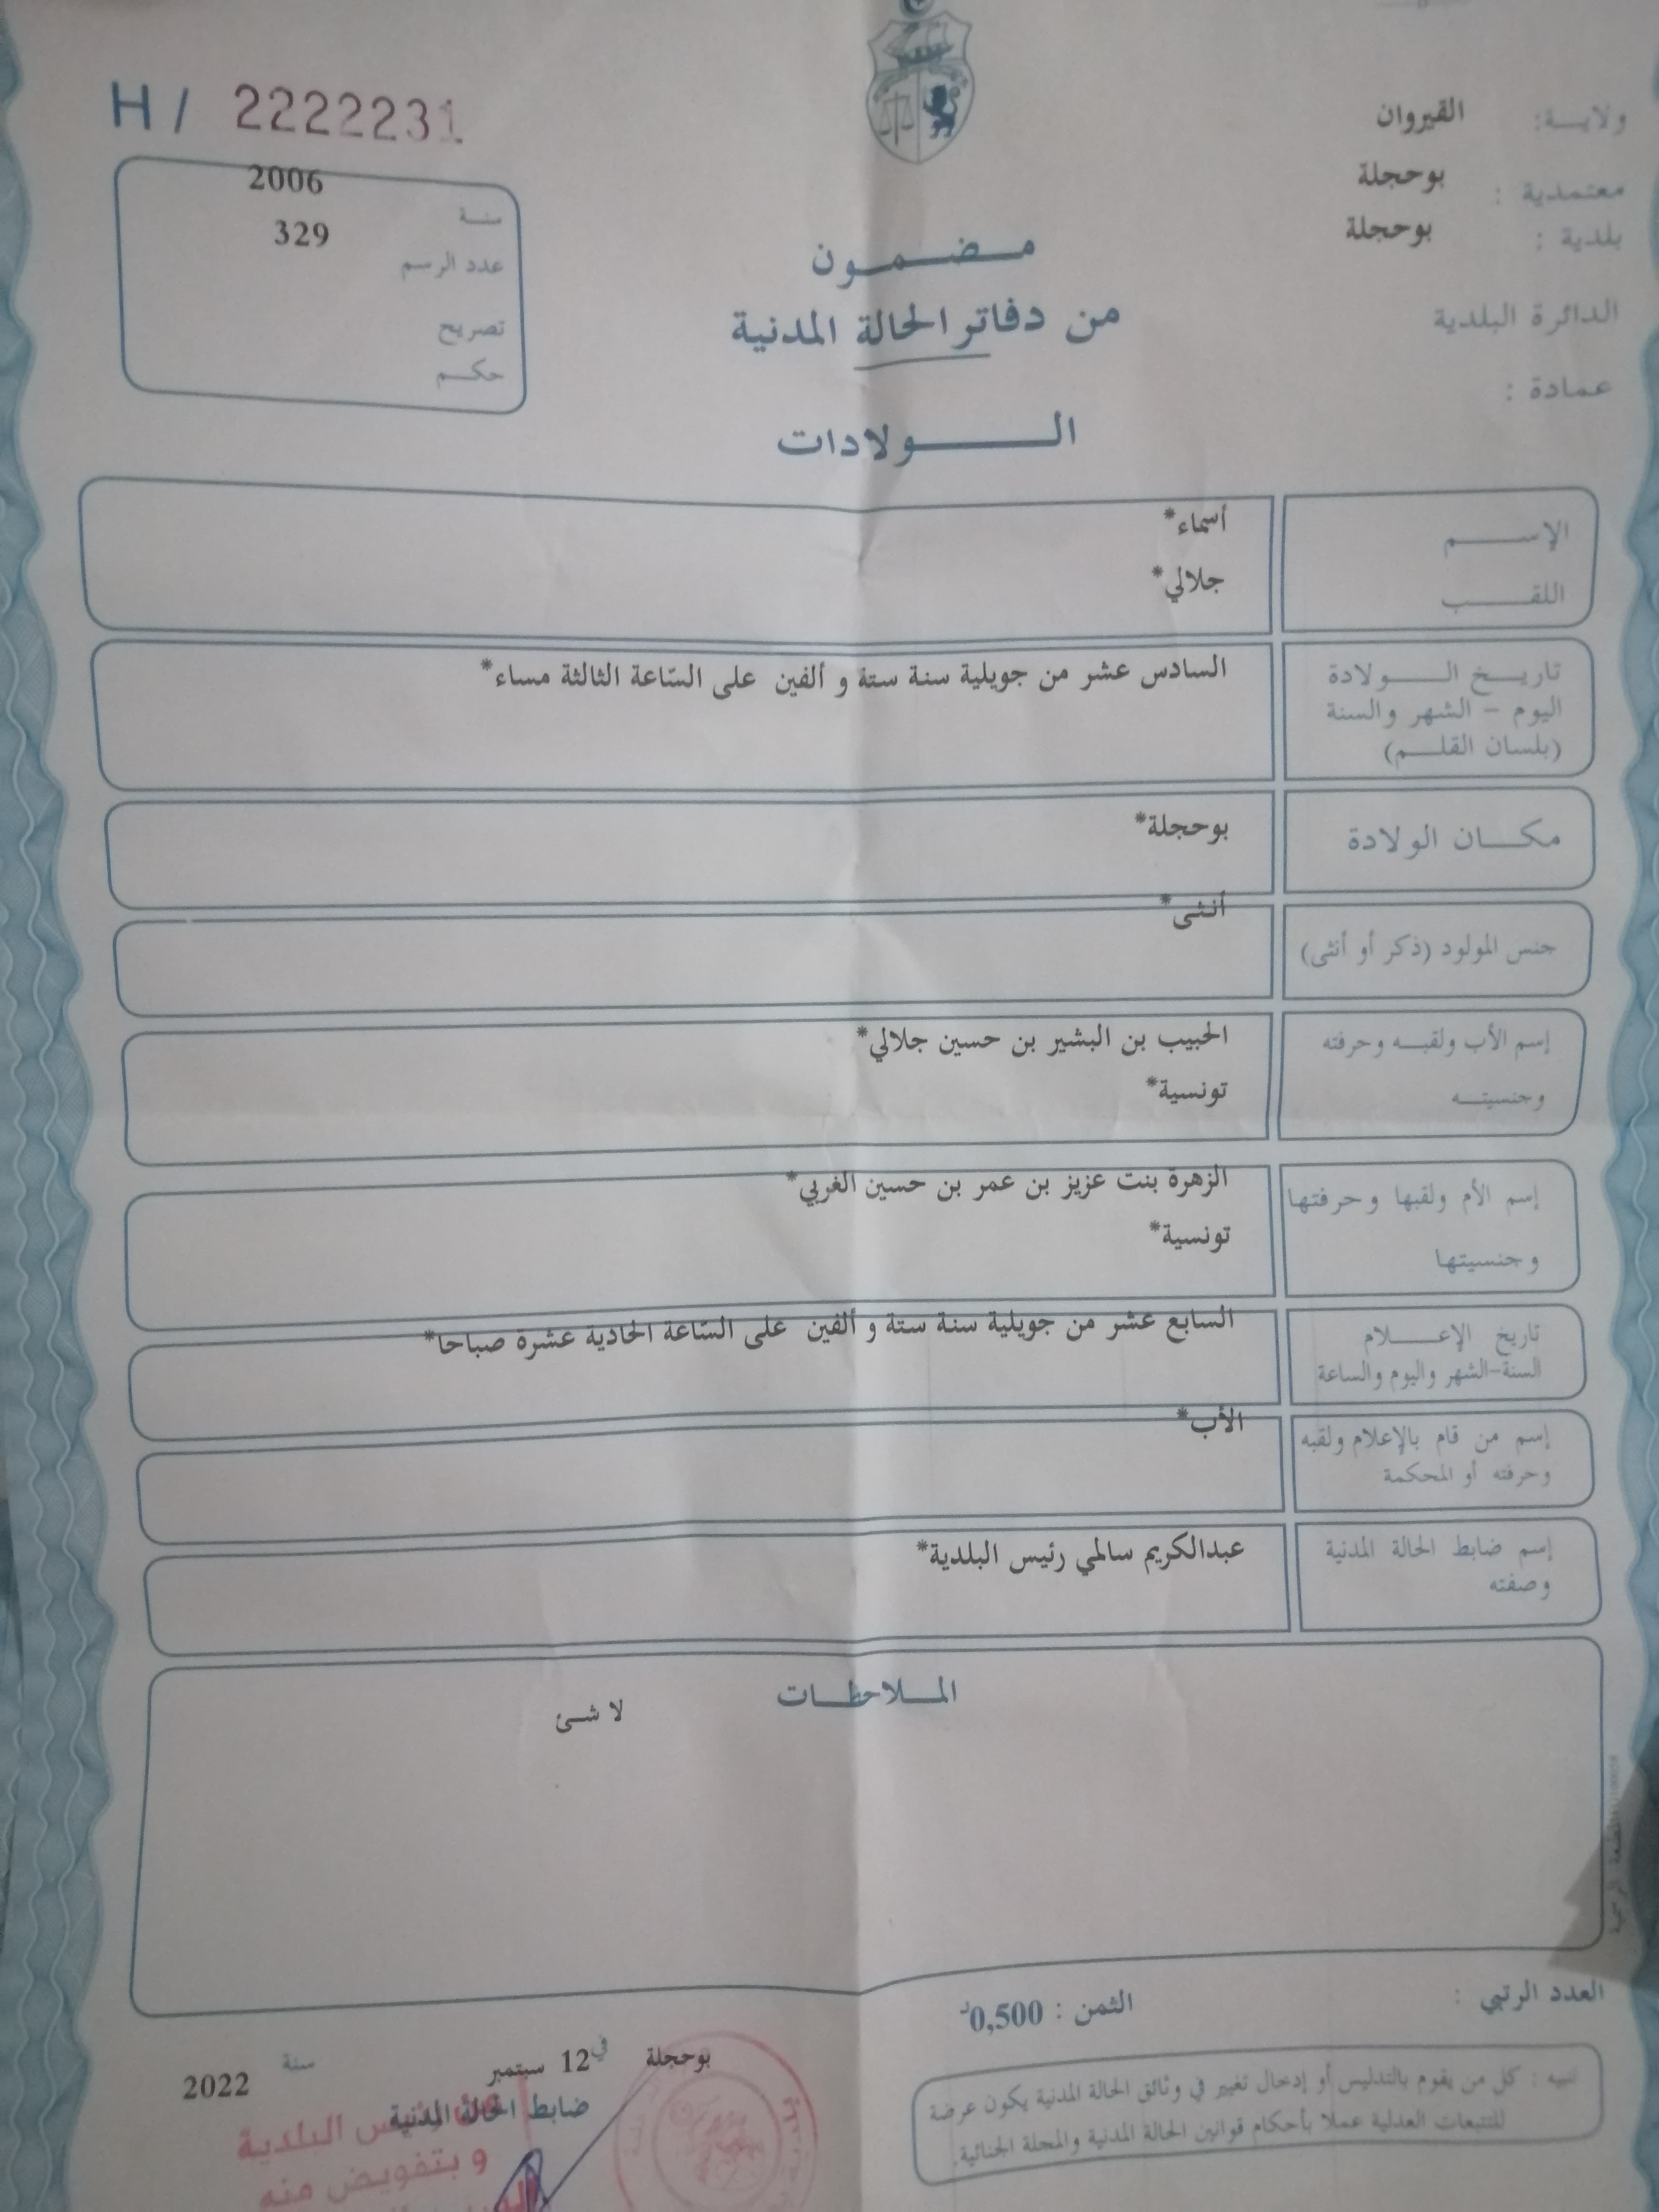 ولايـــة: القيروان
معتمدية : بوحجلة
بلدية : بوحجلة
الدائرة البلدية
عمادة :
H / 2222231
سنة 2006
عدد الرسم 329
تصريح
حكم
مضمون
من دفاتر الحالة المدنية
الولادات
الإسم أسماء*
اللقب جلالي*
تاريخ الولادة السادس عشر من جويلية سنة ستة و ألفين على السّاعة الثالثة مساء*
اليوم – الشهر والسنة
(بلسان القلم)
مكان الولادة بوحجلة*
جنس المولود (ذكر أو أنثى) أنثى*
إسم الأب ولقبه وحرفته الحبيب بن البشير بن حسين جلالي*
وجنسيته تونسية*
إسم الأم ولقبها وحرفتها الزهرة بنت عزيز بن عمر بن حسين الغربي*
وجنسيتها تونسية*
تاريخ الإعلام السابع عشر من جويلية سنة ستة و ألفين على السّاعة الحادية عشرة صباحا*
السنة-الشهر واليوم والساعة
إسم من قام بالإعلام ولقبه الأب*
وحرفته أو المحكمة
إسم ضابط الحالة المدنية عبدالكريم سالمي رئيس البلدية*
وصفته
الملاحظات
لا شئ
العدد الرتبي :
الثمن : 0,500د
تنبيه : كل من يقوم بالتدليس أو إدخال تغيير في وثائق الحالة المدنية يكون عرضة
للتتبعات العدلية عملا بأحكام قوانين الحالة المدنية والمجلة الجنائية.
بوحجلة في 12 سبتمبر سنة 2022
ضابط الحالة المدنية
رئيس البلدية
و بتفويض منه